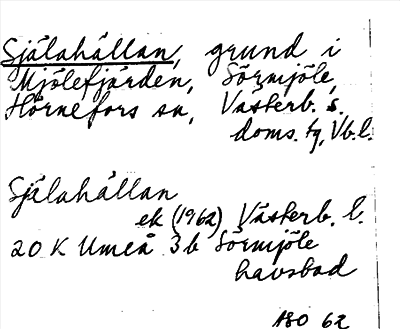 Själahällan, grund i
Mjölefjärden, Sörmjöle,
Hörnefors sn, Västerb. s.
doms. tg, Vb.l.
Själahällan
ek (1962) Västerb. l.
20 K Umeå 3b Sörmjöle
havsbad
ABO 62